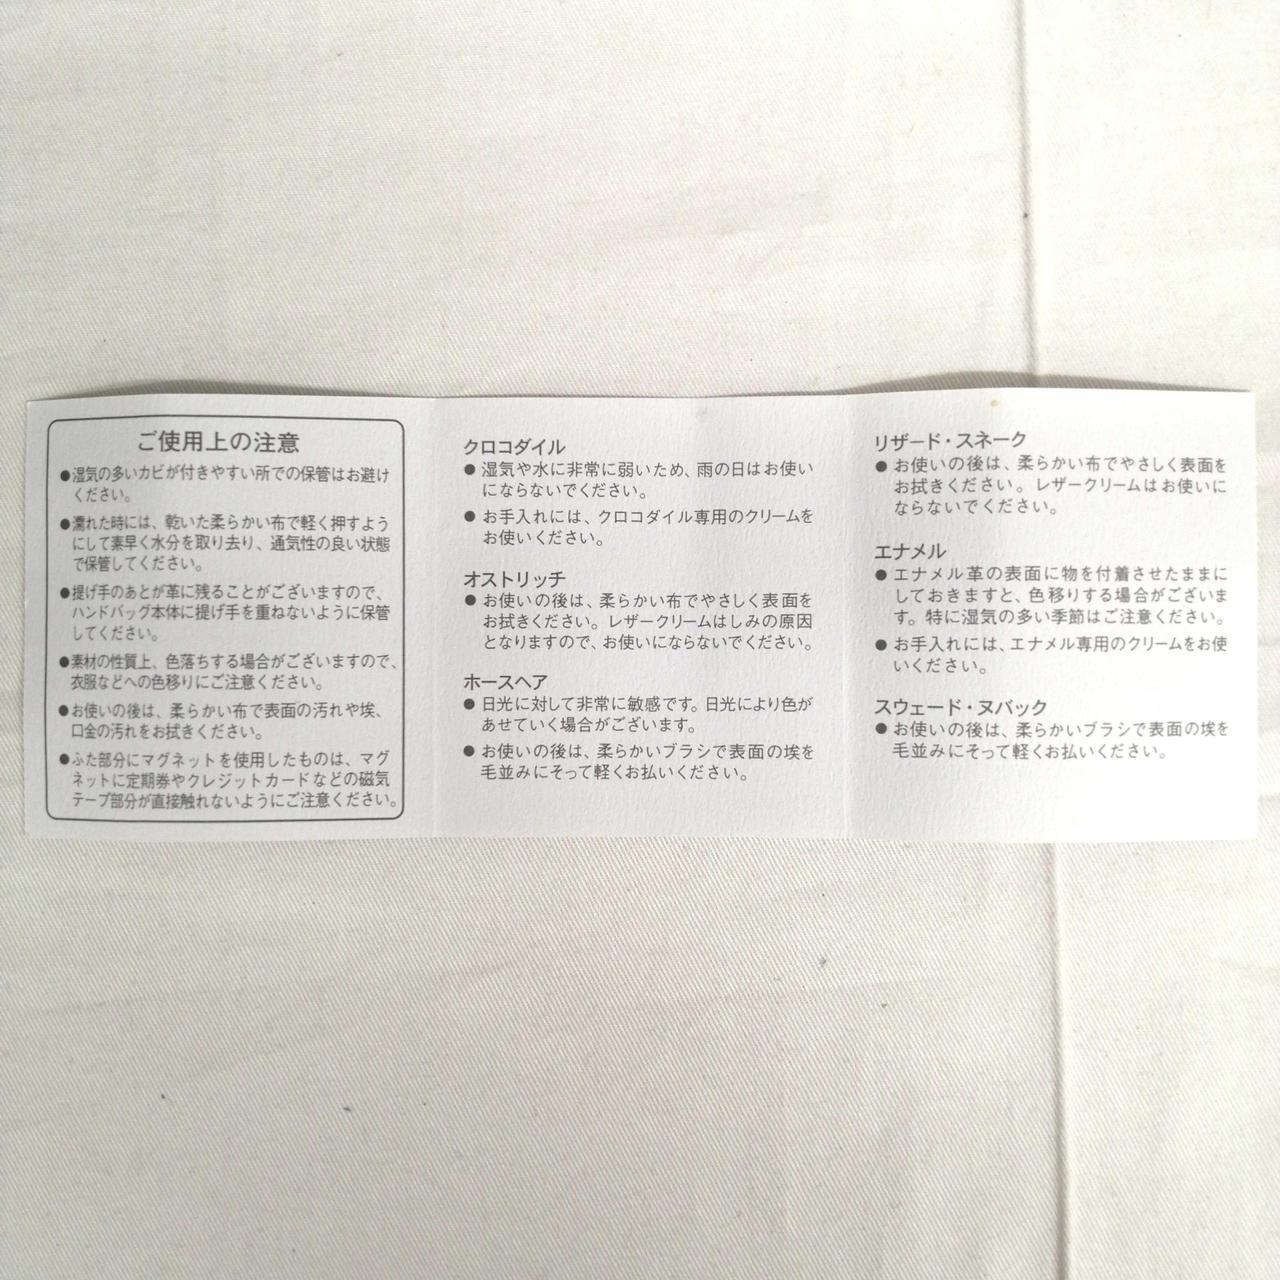 ご使用上の注意
●湿気の多いカビが付きやすい所での保管はお避け
ください。
●濡れた時には、乾いた柔らかい布で軽く押すよう
にして素早く水分を取り去り、通気性の良い状態
で保管してください。
●提げ手のあとが革に残ることがございますので、
ハンドバッグ本体に提げ手を重ねないように保管
してください。
●素材の性質上、色落ちする場合がございますので、
衣服などへの色移りにご注意ください。
●お使いの後は、柔らかい布で表面の汚れや埃、
口金の汚れをお拭きください。
●ふた部分にマグネットを使用したものは、マグ
ネットに定期券やクレジットカードなどの磁気
テープ部分が直接触れないようにご注意ください。
クロコダイル
● 湿気や水に非常に弱いため、雨の日はお使い
にならないでください。
● お手入れには、クロコダイル専用のクリームを
お使いください。
オストリッチ
● お使いの後は、柔らかい布でやさしく表面を
お拭きください。レザークリームはしみの原因
となりますので、お使いにならないでください。
ホースヘア
● 日光に対して非常に敏感です。日光により色が
あせていく場合がございます。
● お使いの後は、柔らかいブラシで表面の埃を
毛並みにそって軽くお払いください。
リザード・スネーク
● お使いの後は、柔らかい布でやさしく表面を
お拭きください。レザークリームはお使いに
ならないでください。
エナメル
● エナメル革の表面に物を付着させたままに
しておきますと、色移りする場合がございま
す。特に湿気の多い季節はご注意ください。
● お手入れには、エナメル専用のクリームをお使
いください。
スウェード・ヌバック
● お使いの後は、柔らかいブラシで表面の埃を
毛並みにそって軽くお払いください。